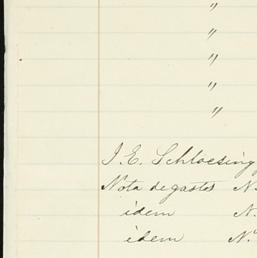 "
"
"
"
"
J. E. Schloesing
Nota de gastos N.
idem N.
idem N.